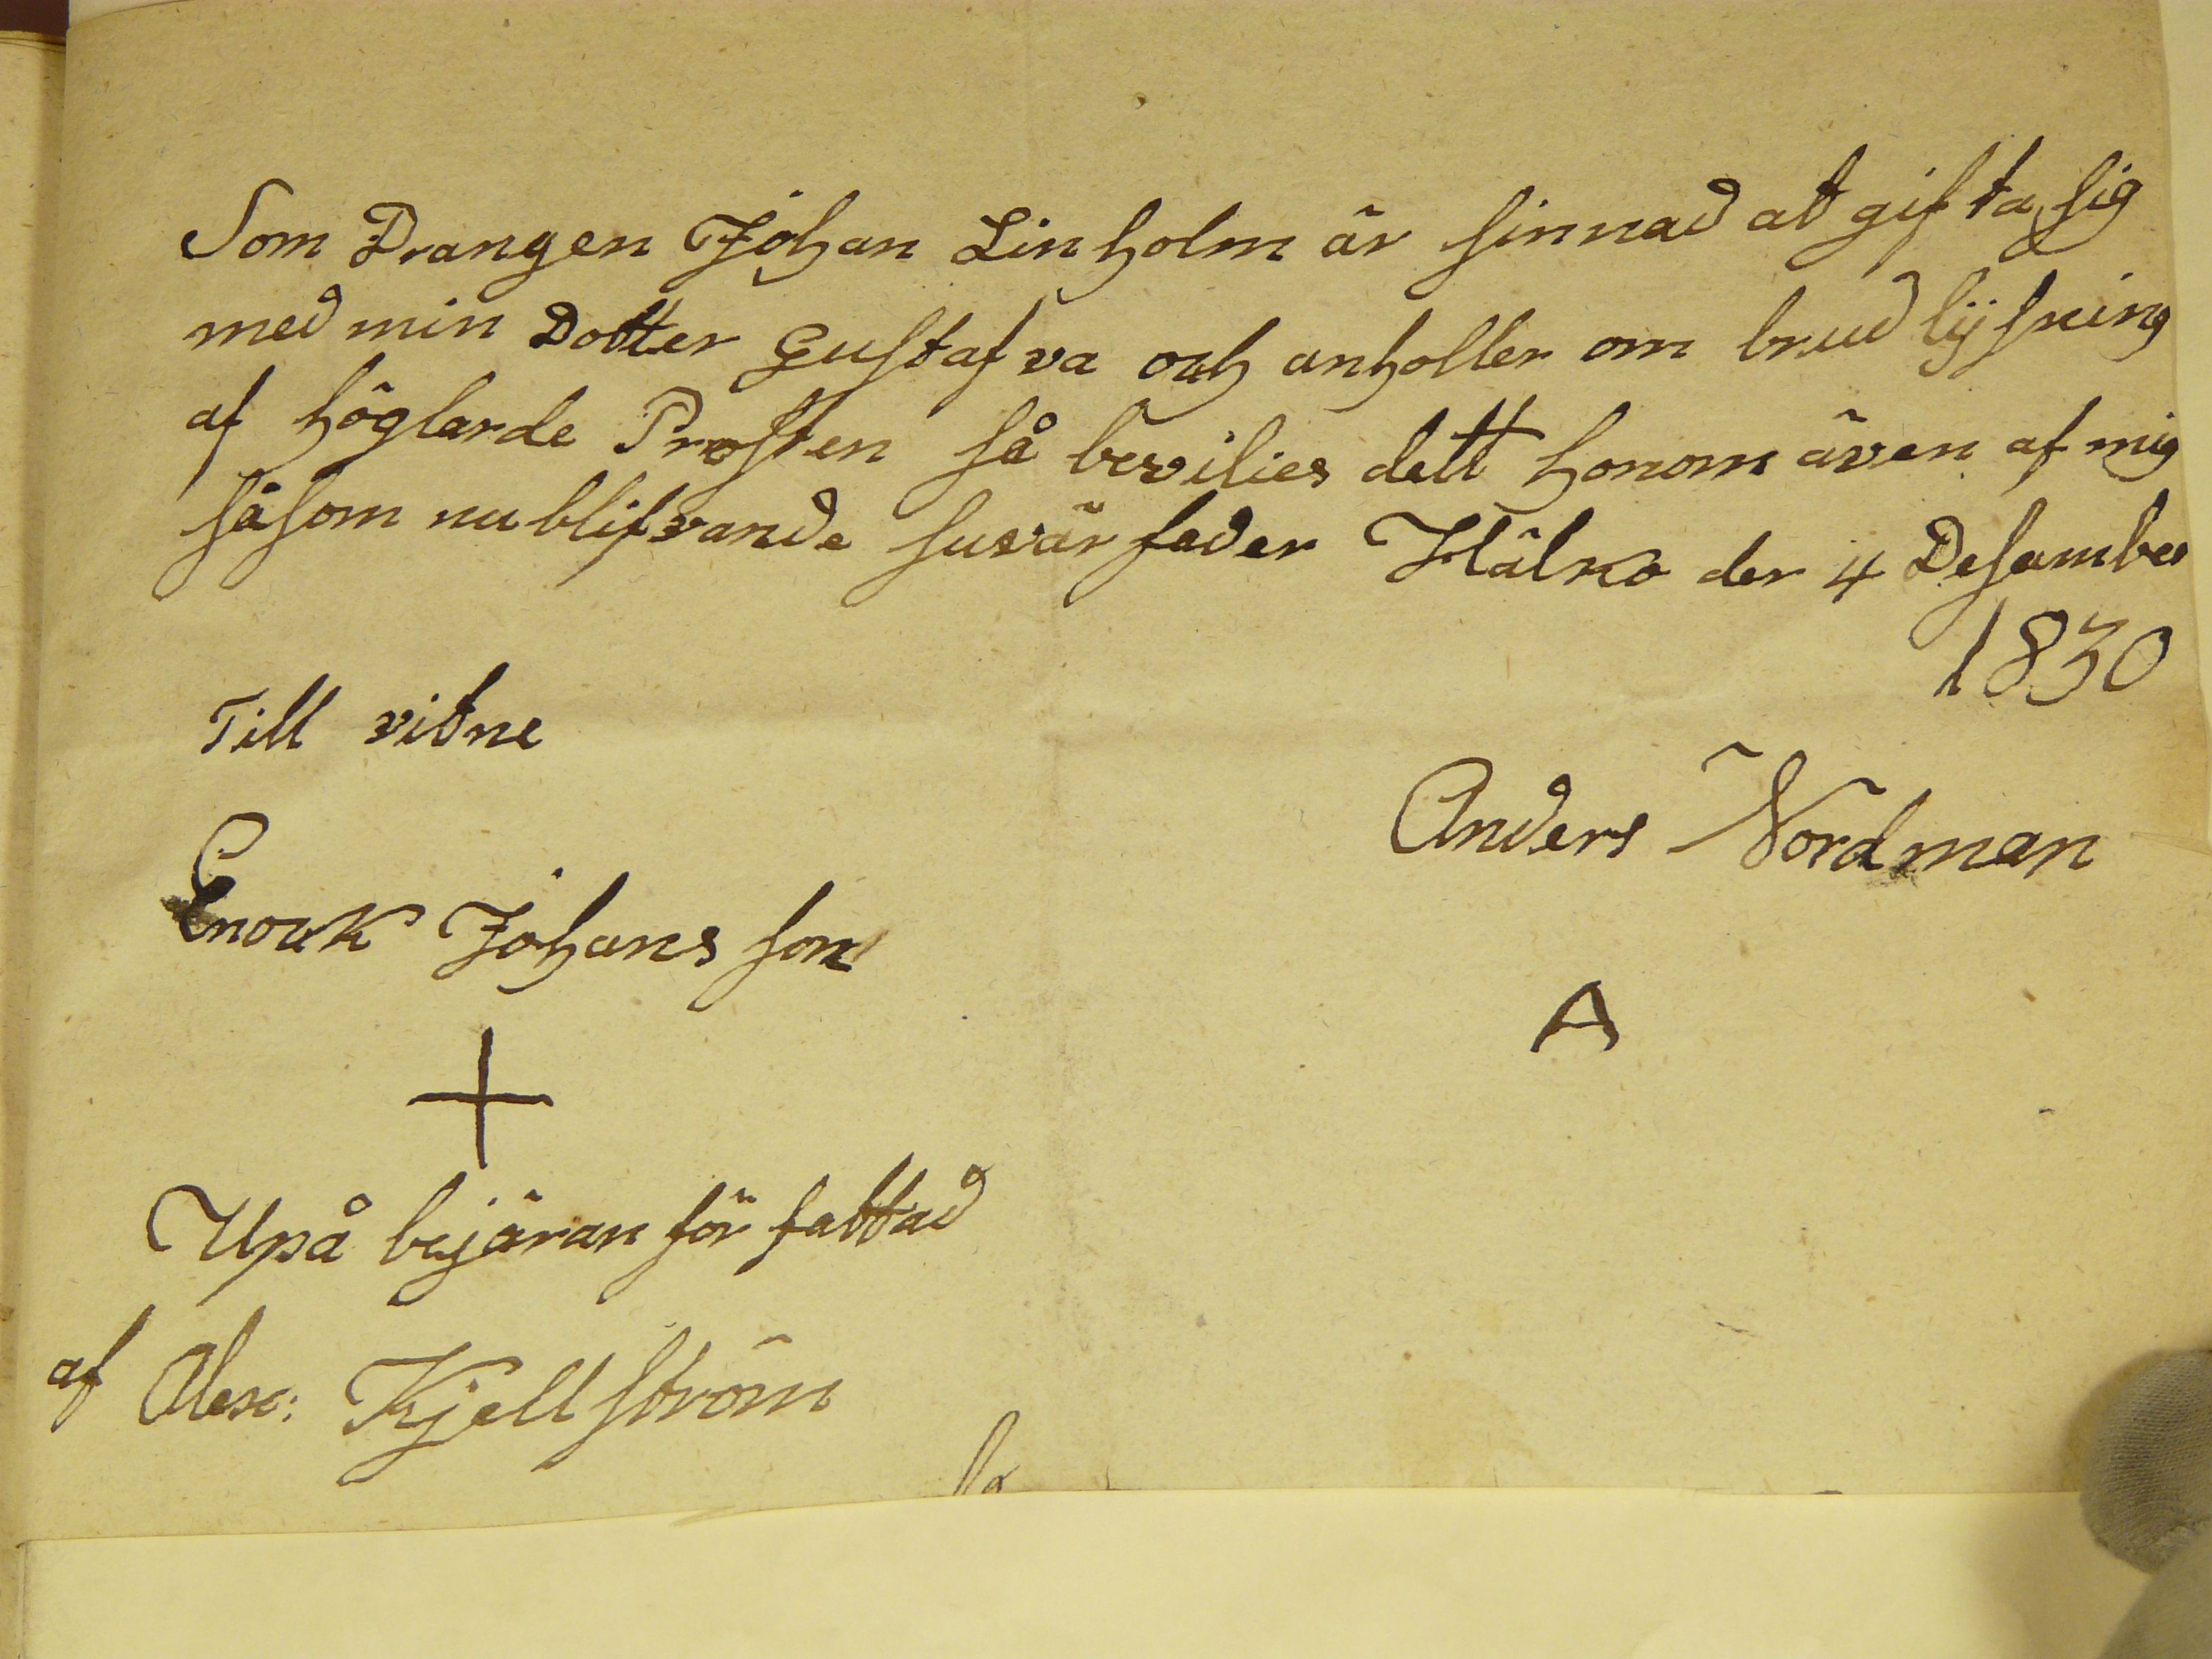 Som Drangen Johan Linholm är sinnad at gifta sig
med min Dotter Gustafva och anholler om brud lysning
af höglarde Prosten så bevilies dett honom även af mig
såsom nu blifvande svär fader Hälko der 4 Desamber
1830
Till vitne
Anders Nordman
Enouk Johans son
A
+
Upå bejäran för fattad
af Alex: Kjellström